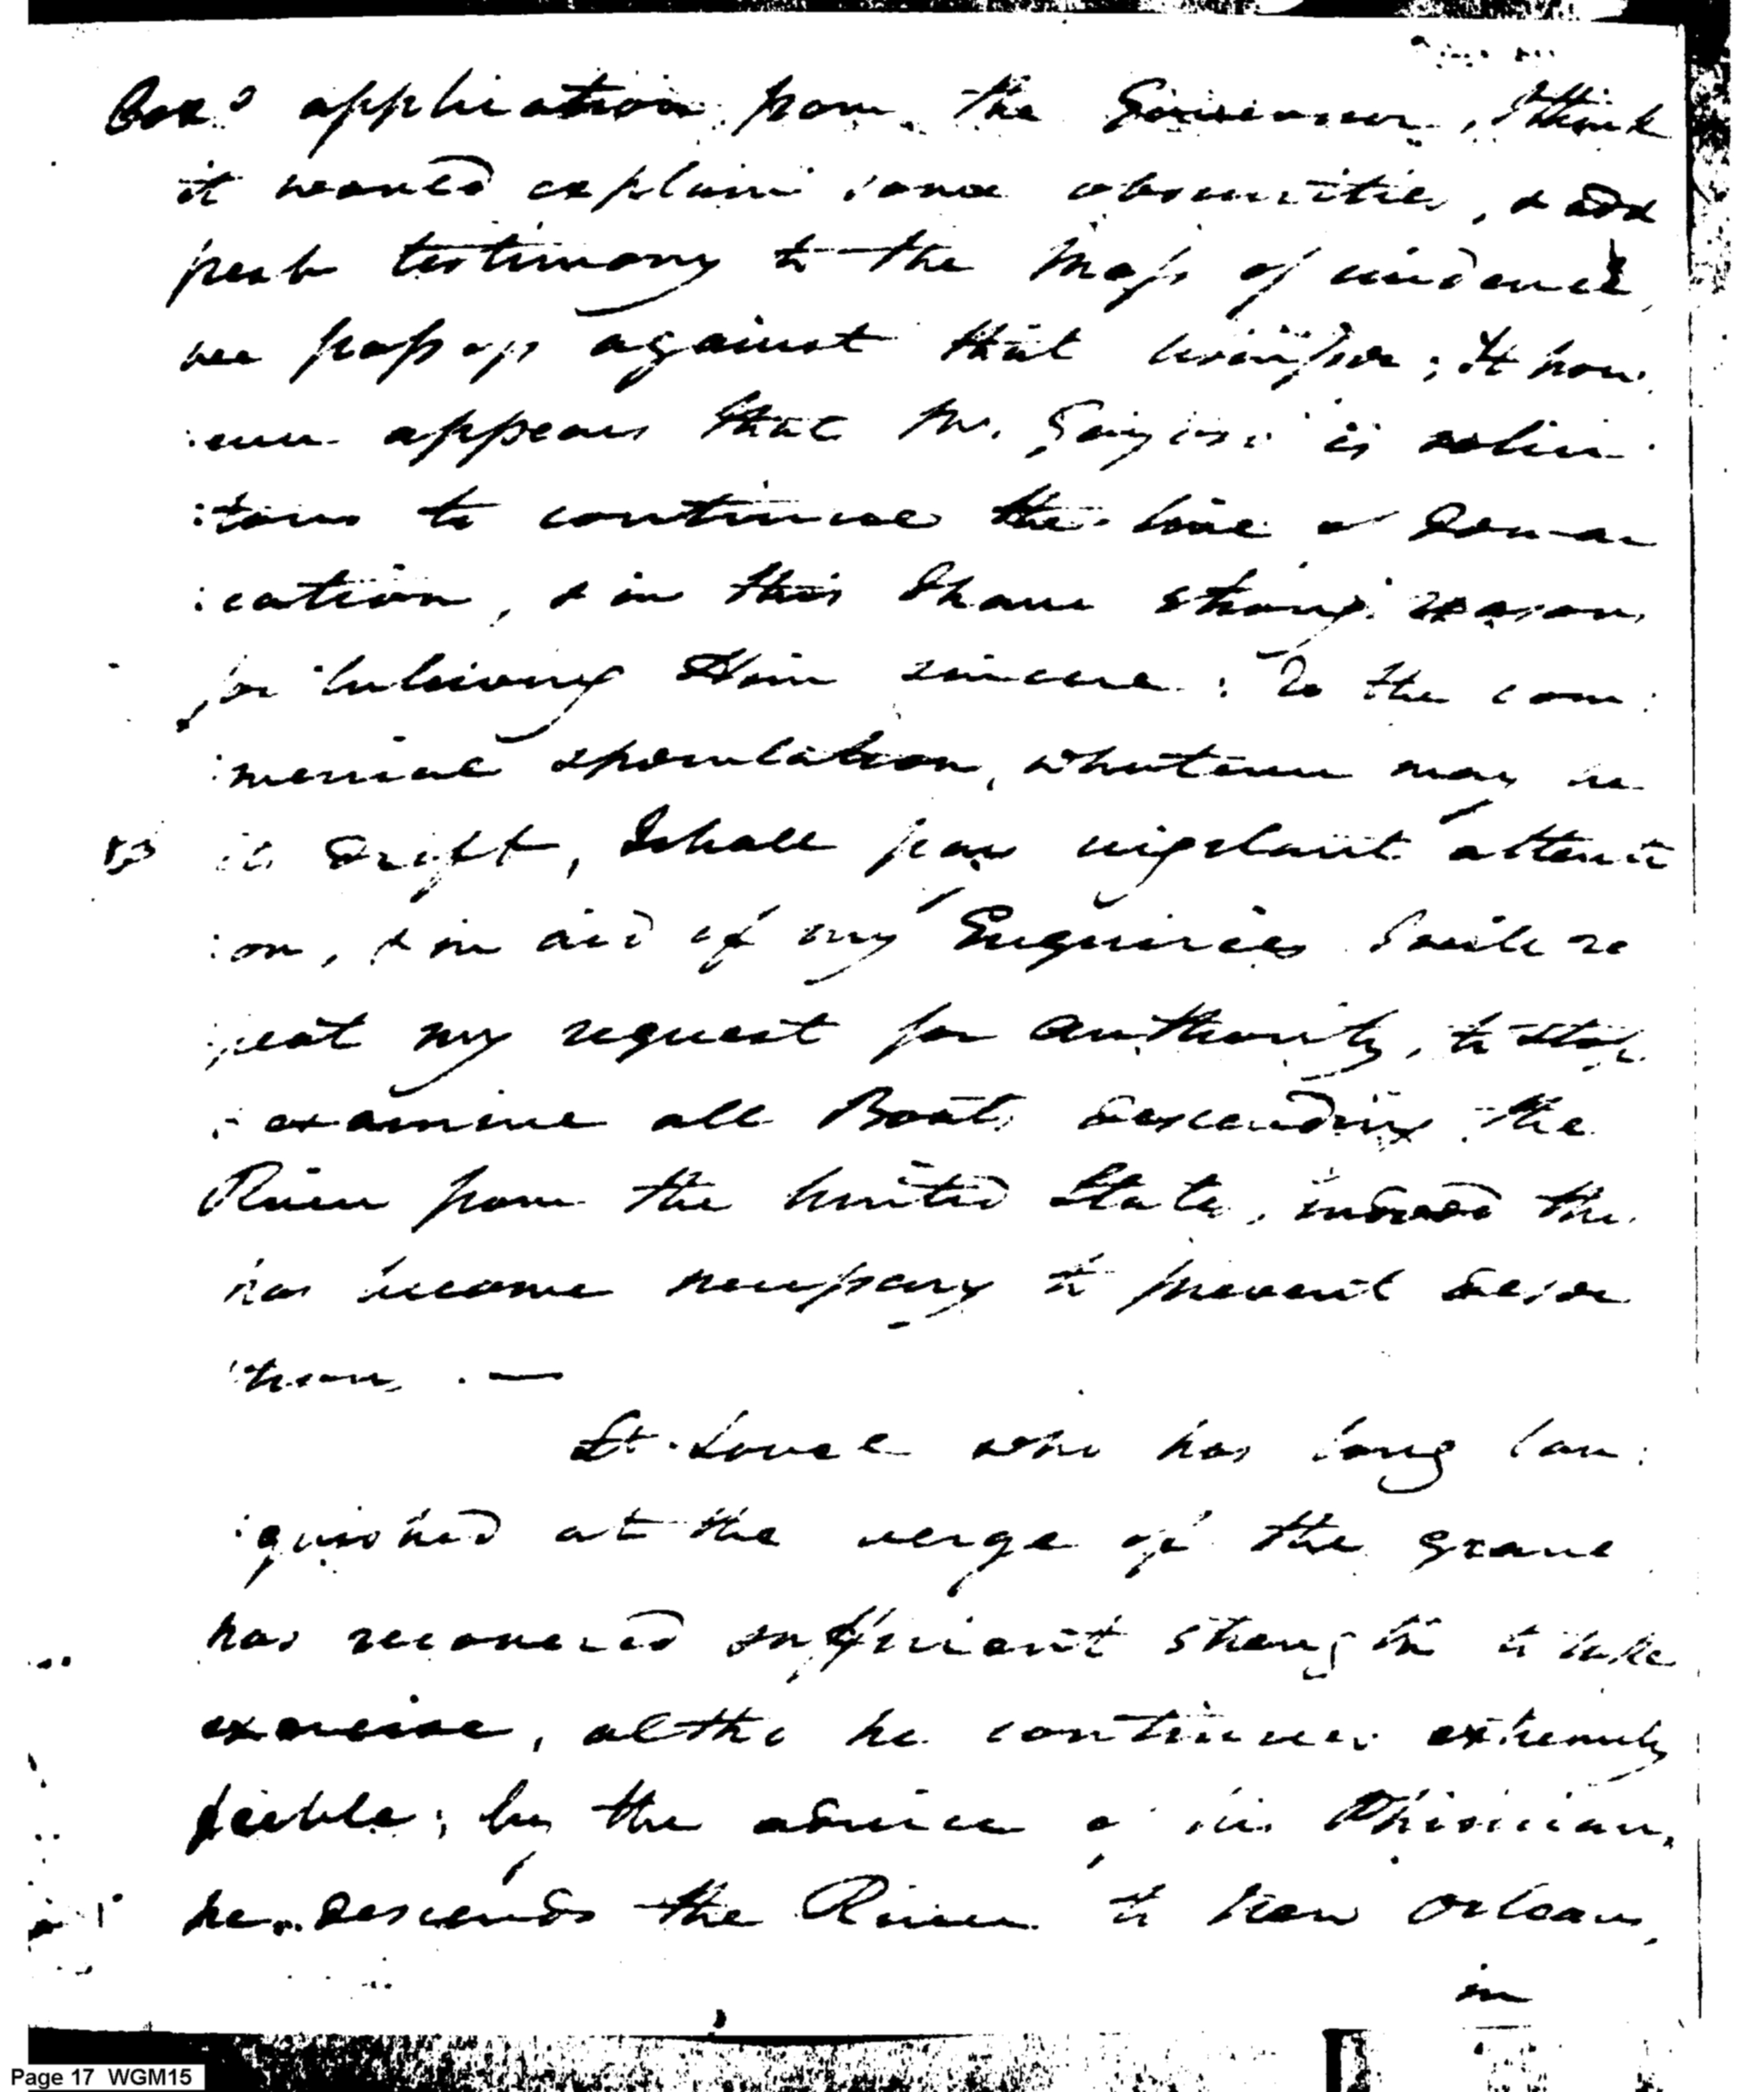 application from the Governor, I think
it would explain some obscurities, & add
fresh testimony to the Mass of evidence,
we possess against that ; It how
:ever appears that Mr. Gayoso is solici
:tous to continue the line of Demar
:cation, & in this I have strong reasons
for believing Him sincere: To the com:
:mercial speculation, whatever may be
its Drift, I shall pay vigilant attenti
:on, & in aid of my Enquiries I will re
:peat my request for authority, to stop
& examine all Boats descending the
River from the United States, indeed this
has become necessary to prevent deser
:tions. —
Lt. Lovell who has long lan:
:guished at the verge of the grave
has recovered sufficient strength to take
exercise, altho he continues extremely
feeble; by the advice of his Phisician,
he descends the River to New Orleans,
in
Page 17 WGM15